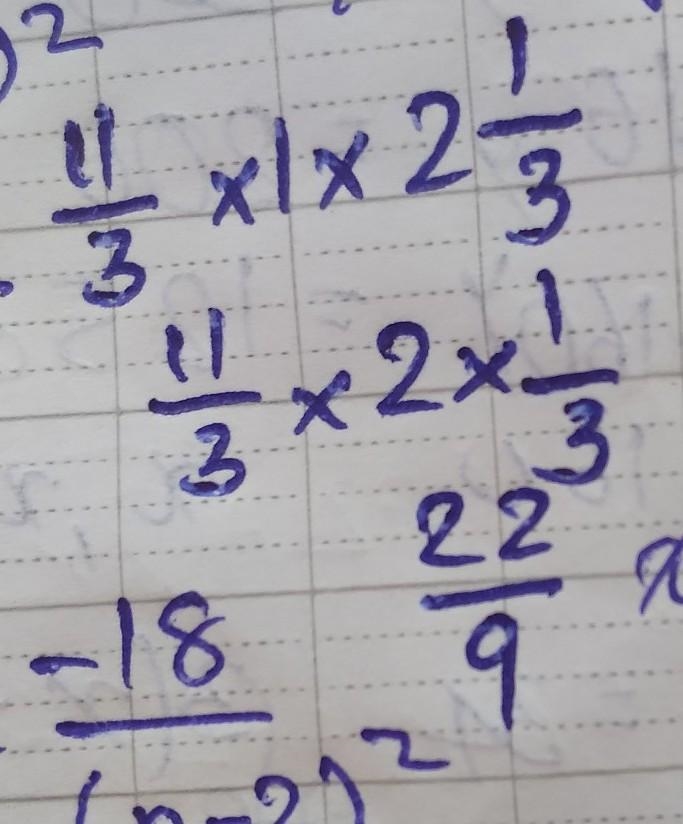 )²
11/3 × 1 × 2 1/3
11/3 × 2 × 1/3
22/9 x
-18
(n-2)²